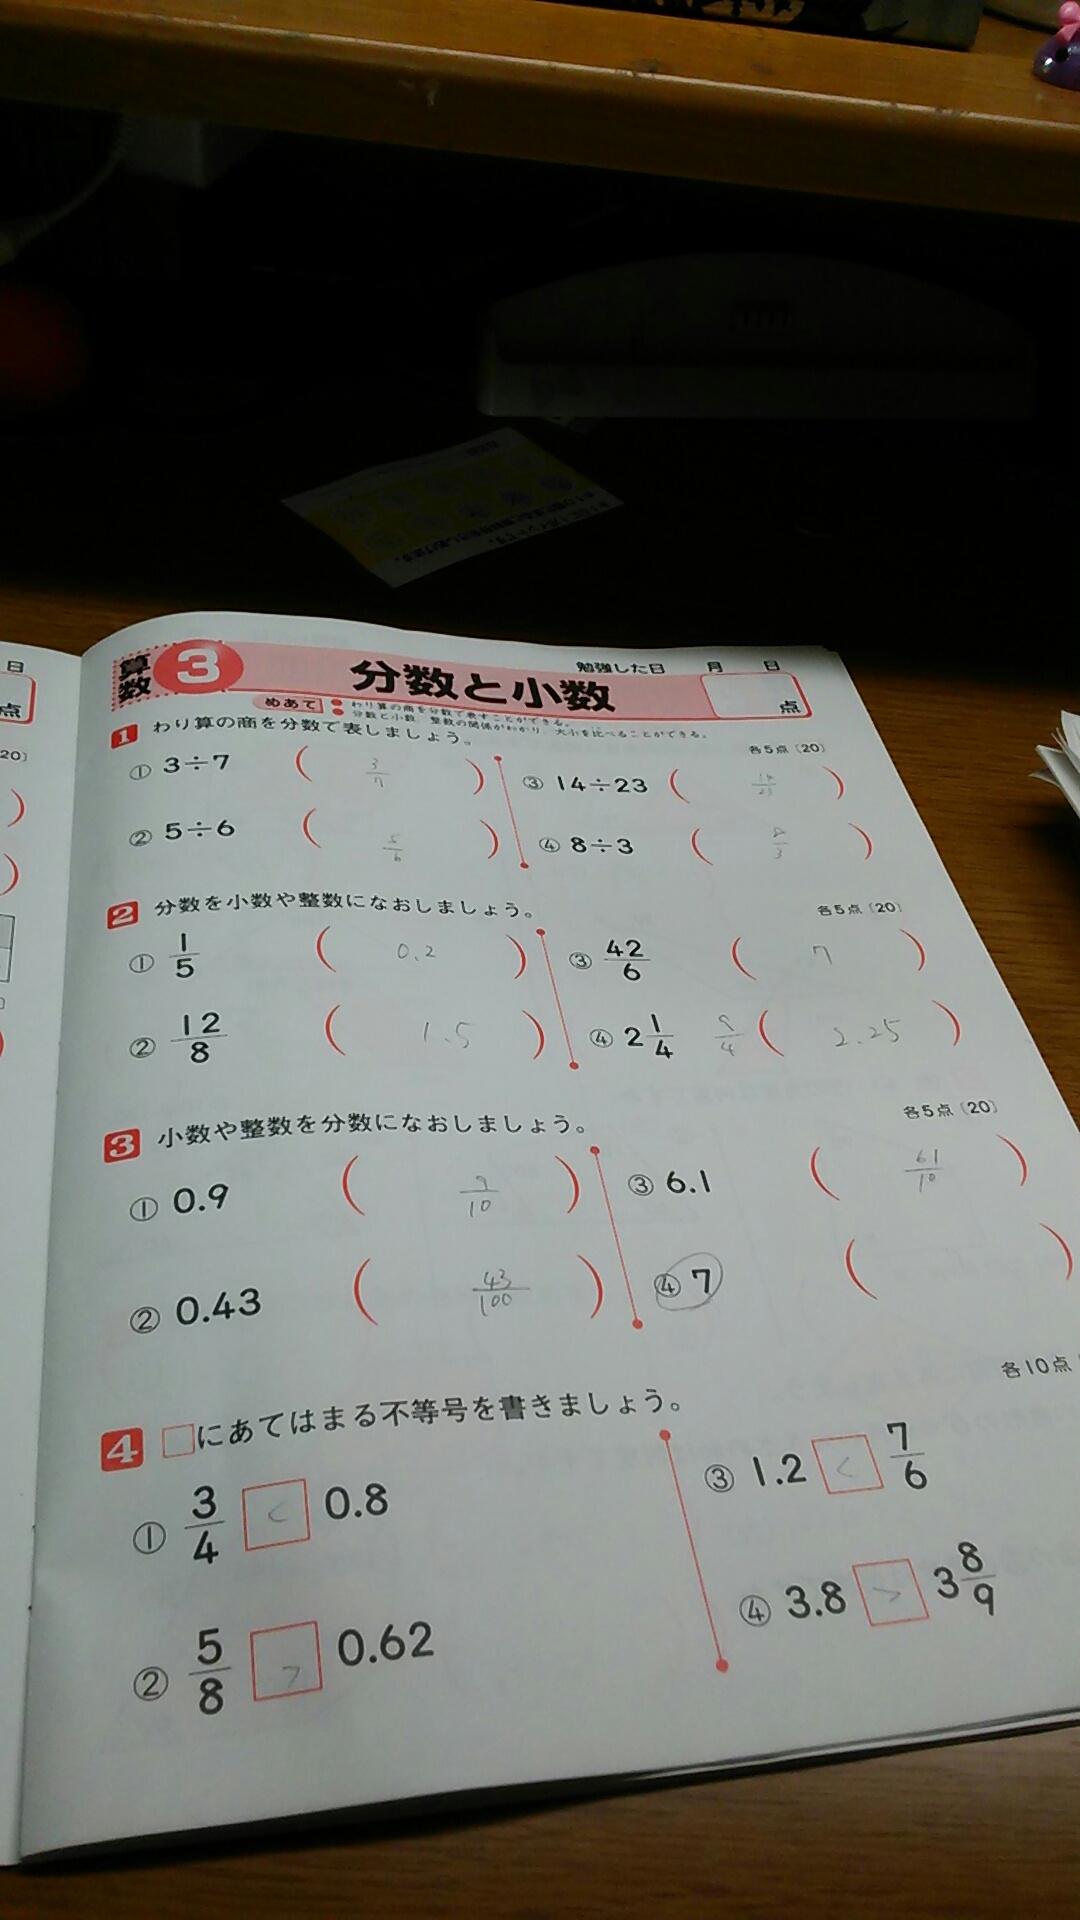 日
点
20)
算数 3 分数と小数 勉強した日 月 日
点
めあて ●わり算の商を分数で表すことができる。
●分数と小数 整数の関係がわかり、大小を比べることができる。
1 わり算の商を分数で表しましょう。 各5点(20)
① 3÷7 ( 3/7 ) ③ 14÷23 ( 14/23 )
② 5÷6 ( 5/6 ) ④ 8÷3 ( 8/3 )
2 分数を小数や整数になおしましょう。 各5点(20)
① 1/5 ( 0.2 ) ③ 42/6 ( 7 )
② 12/8 ( 1.5 ) ④ 2 1/4 9/4 ( 2.25 )
3 小数や整数を分数になおしましょう。 各5点(20)
① 0.9 ( 9/10 ) ③ 6.1 ( 61/10 )
② 0.43 ( 43/100 ) ④ 7 ( )
4 □にあてはまる不等号を書きましょう。 各10点
① 3/4 < 0.8 ③ 1.2 < 7/6
② 5/8 > 0.62 ④ 3.8 > 3 8/9